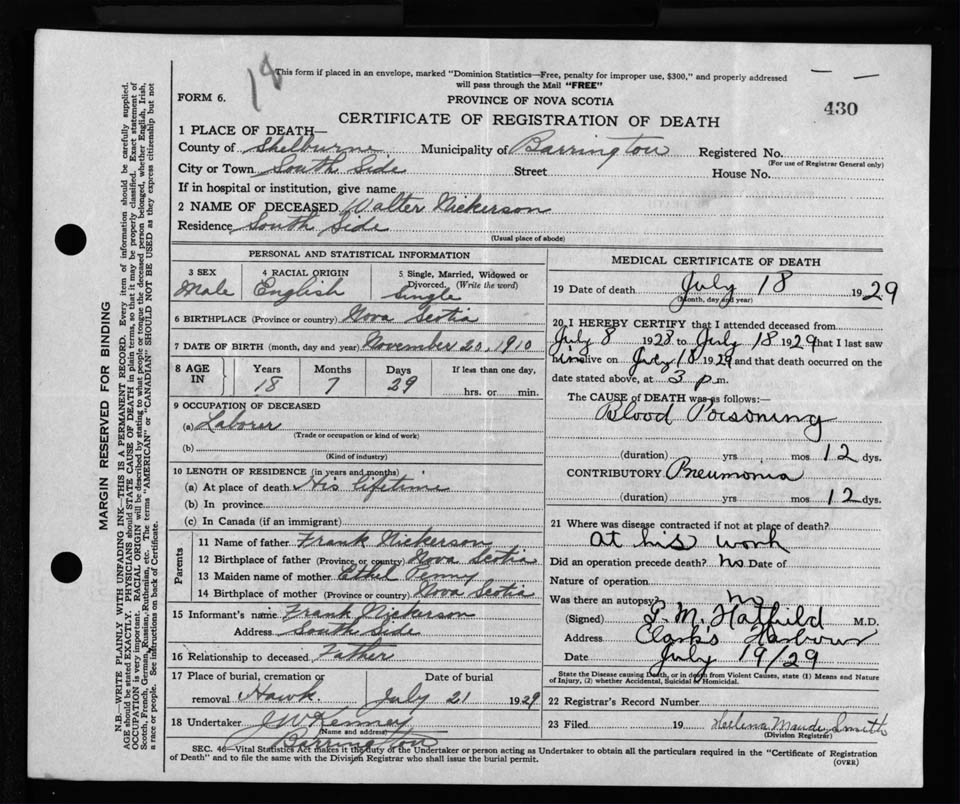 18
This form if placed in an envelope, marked "Dominion Statistics—Free, penalty for improper use, $300," and properly addressed
will pass through the Mail "FREE"
FORM 6.
PROVINCE OF NOVA SCOTIA
430
CERTIFICATE OF REGISTRATION OF DEATH
1 PLACE OF DEATH—
County of Shelburne Municipality of Barrington Registered No.
(For use of Registrar General only)
City or Town South Side Street House No.
If in hospital or institution, give name
2 NAME OF DECEASED Walter Nickerson
Residence South Side
(Usual place of abode)
PERSONAL AND STATISTICAL INFORMATION
3 SEX 4 RACIAL ORIGIN 5 Single, Married, Widowed or
Divorced. (Write the word)
Male English Single
6 BIRTHPLACE (Province or country) Nova Scotia
7 DATE OF BIRTH (month, day and year) November 20, 1910
8 AGE IN Years Months Days If less than one day,
18 7 29 hrs. or min.
9 OCCUPATION OF DECEASED
(a) Laborer
(Trade or occupation or kind of work)
(b)
(Kind of industry)
10 LENGTH OF RESIDENCE (in years and months)
(a) At place of death His lifetime
(b) In province
(c) In Canada (if an immigrant)
Parents
11 Name of father Frank Nickerson
12 Birthplace of father (Province or country) Nova Scotia
13 Maiden name of mother Ethel Penny
14 Birthplace of mother (Province or country) Nova Scotia
15 Informant's name Frank Nickerson
Address South Side
16 Relationship to deceased Father
17 Place of burial, cremation or Date of burial
removal Hawk July 21 1929
18 Undertaker J W Kenney
(Name and address)
Barrington
MEDICAL CERTIFICATE OF DEATH
19 Date of death July 18 1929
(Month, day and year)
20 I HEREBY CERTIFY that I attended deceased from
July 8 1928 to July 18 1929 that I last saw
him alive on July 18 1929 and that death occurred on the
date stated above, at 3 p.m.
The CAUSE of DEATH was as follows:
Blood Poisoning
(duration) yrs mos 12 dys.
CONTRIBUTORY Pneumonia
(duration) yrs mos 12 dys.
21 Where was disease contracted if not at place of death?
At his work
Did an operation precede death? No Date of
Nature of operation
Was there an autopsy? no
(Signed) M. Hatfield M.D.
Address Clark's Harbour
Date July 19/29
State the Disease causing Death, or in death from Violent Causes, state (1) Means and Nature
of Injury, (2) whether Accidental, Suicidal or Homicidal.
22 Registrar's Record Number
23 Filed 19 Hellena Maude Smith
(Division Registrar)
SEC. 46—Vital Statistics Act makes it the duty of the Undertaker or person acting as Undertaker to obtain all the particulars required in the "Certificate of Registration
of Death" and to file the same with the Division Registrar who shall issue the burial permit.
(OVER)
MARGIN RESERVED FOR BINDING
N.B.—WRITE PLAINLY WITH UNFADING INK—THIS IS A PERMANENT RECORD. Every item of information should be carefully supplied.
AGE should be stated EXACTLY. PHYSICIANS should STATE CAUSE OF DEATH in plain terms, so that it may be properly classified. Exact statement of
OCCUPATION is very important. RACIAL ORIGIN will be described by stating to what people or tongue the deceased person belonged, whether English, Irish,
Scotch, French, German, Russian, Ruthenian, etc. The terms "AMERICAN" or "CANADIAN" SHOULD NOT BE USED as they express citizenship but not
a race or people. See instructions on back of Certificate.